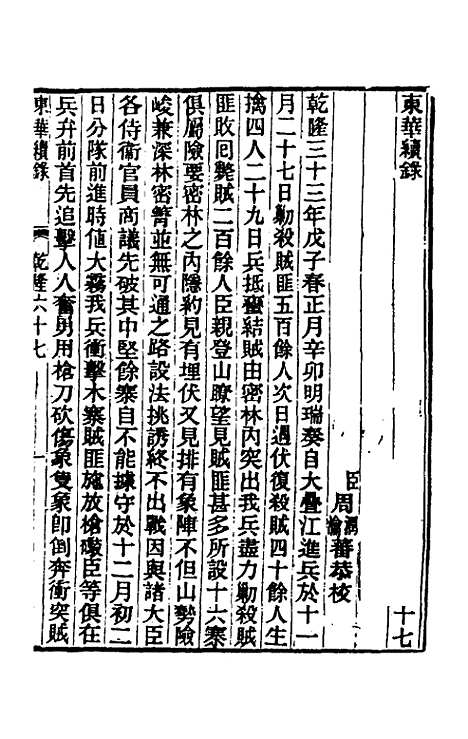 東華續錄
十七
臣周潤蕃
瀹恭校
乾隆三十三年戊子春正月辛卯明瑞奏自大疊江進兵於十一
月二十七日勦殺賊匪五百餘人次日遇伏復殺賊四十餘人生
擒四人二十九日兵抵蠻結賊由密林內突出我兵盡力勦殺賊
匪敗回斃賊二百餘人臣親登山瞭望見賊匪甚多所設十六寨
俱屬險要密林之內隱約見有埋伏又見排有象陣不但山勢險
峻兼深林密箐並無可通之路設法挑誘終不出戰因與諸大臣
各侍衞官員商議先破其中堅餘寨自不能據守於十二月初二
日分隊前進時值大霧我兵衝擊木寨賊匪施放槍礮臣等俱在
兵弁前首先追擊人人奮勇用槍刀砍傷象隻象卽倒奔衝突賊
東華續錄
乾隆六十七
一